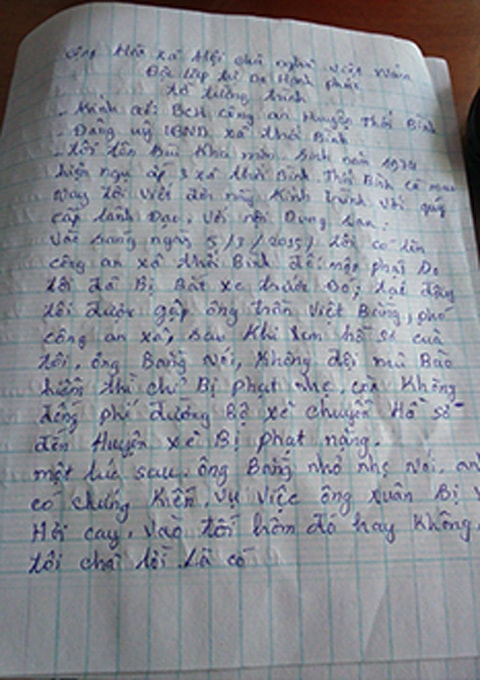 cộng Hoà xã Hội chủ nghĩa việt Nam
Độc lập tự Do Hạnh phúc
tờ tường trình
- Kính gửi: BCH công an Huyện Thới Bình
- Đảng uỷ UBND xã thới Bình
- tôi tên Bùi Kha min, sinh năm 1974
hiện ngụ ấp 3 xã thới Bình. Thới Bình cà mau
Nay tôi viết đơn này Kính trình với quý
cấp lãnh Đạo, với nội Dung sau:
vào sáng ngày 5/3/2015/ tôi có lên
công an xã thới Bình để nộp phạt Do
tôi đã Bị Bắt xe trước Đó, tại đây
tôi được gặp ông trần Việt Bằng, phó
công an xã, sau Khi xem hồ sơ của
tôi, ông Bằng nói, Không đội mũ Bảo
hiểm thì chỉ Bị phạt nhẹ, còn Không
đóng phí đường Bộ xẽ chuyển Hồ sơ
đến Huyện xẽ Bị phạt nặng.
một lúc sau, ông Bằng nhỏ nhẹ nói, an
có chứng Kiến, vụ việc ông xuân Bị
Hơi cay, vào tối hôm đó hay Không,
tôi chả lời là có